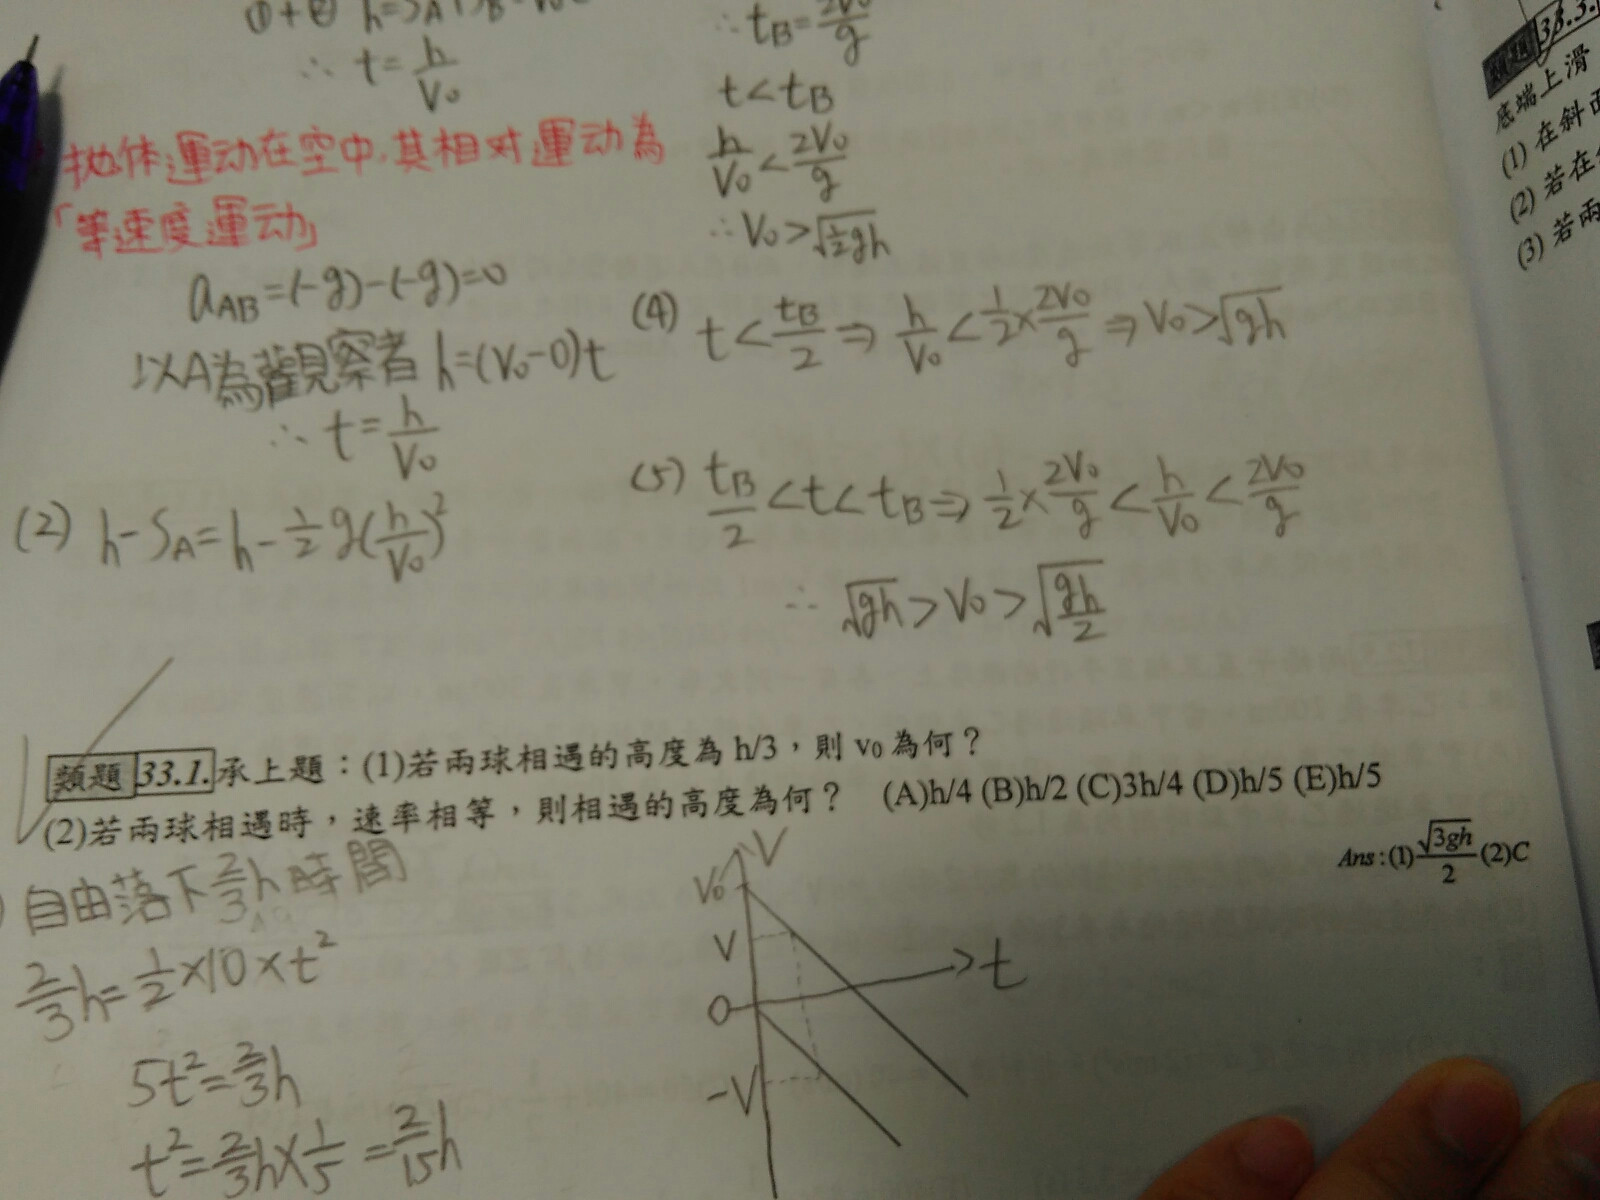 ∴ t = h/V₀
拋体運动在空中,其相对運动為
「等速度運动」
a_AB = (-g)-(-g) = 0
以A為觀察者 h = (V₀-0)t
∴ t = h/V₀
(2) h - S_A = h - 1/2 g(h/V₀)²
∴ t_B = 2V₀/g
t < t_B
h/V₀ < 2V₀/g
∴ V₀ > √(1/2 gh)
(4) t < t_B/2 ⇒ h/V₀ < 1/2 × 2V₀/g ⇒ V₀ > √gh
(5) t_B/2 < t < t_B ⇒ 1/2 × 2V₀/g < h/V₀ < 2V₀/g
∴ √gh > V₀ > √(gh/2)
類題 33.1. 承上題：(1)若兩球相遇的高度為 h/3，則 v₀ 為何？
(2)若兩球相遇時，速率相等，則相遇的高度為何？ (A)h/4 (B)h/2 (C)3h/4 (D)h/5 (E)h/5
Ans：(1) √3gh/2 (2)C
自由落下 2/3 h 時間
2/3 h = 1/2 × 10 × t²
5t² = 2/3 h
t² = 2/3 h × 1/5 = 2/15 h
V
V₀
V
0
t
-V
類題 33.3.
底端上滑
(1) 在斜
(2) 若在
(3) 若兩